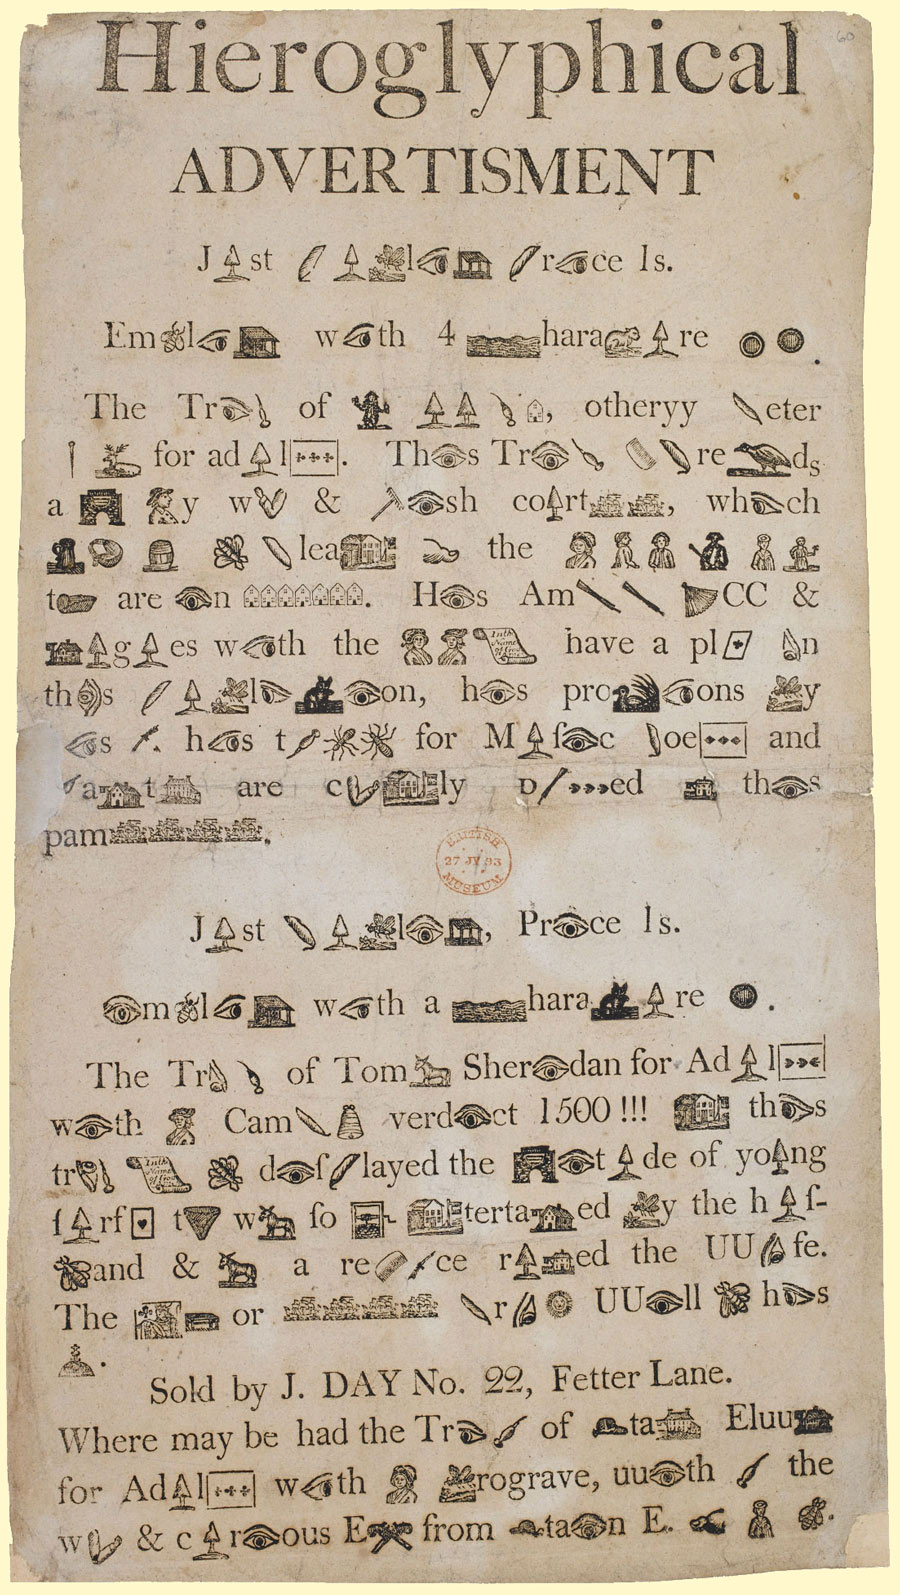 Hieroglyphical
ADVERTISMENT
J st l r ce 1s.
Em l w th 4 hara re .
The Tr of , otheryy eter
for ad l . Th s Tr re ds
a y w & sh co rt , wh ch
lea the
t are n . H s Am CC &
g es w th the have a pl n
th s l on, h s pro ons y
s h s t for M ſ c oe and
a t are c ly D ed th s
pam .
BRITISH MUSEUM 27 JY 93
J st l , Pr ce 1s.
m l w th a hara re .
The Tr of Tom Sher dan for Ad l
w th Cam verd ct 1500 !!! th s
tr d ſ layed the t de of yo ng
ſ rf t w ſo terta ed y the h ſ-
and & a re ce r ed the UU fe.
The or r UU ll h s
.
Sold by J. DAY No. 22, Fetter Lane.
Where may be had the Tr of ta Eluu
for Ad l w th rograve, uu th the
w & c r ous E from ta n E. .